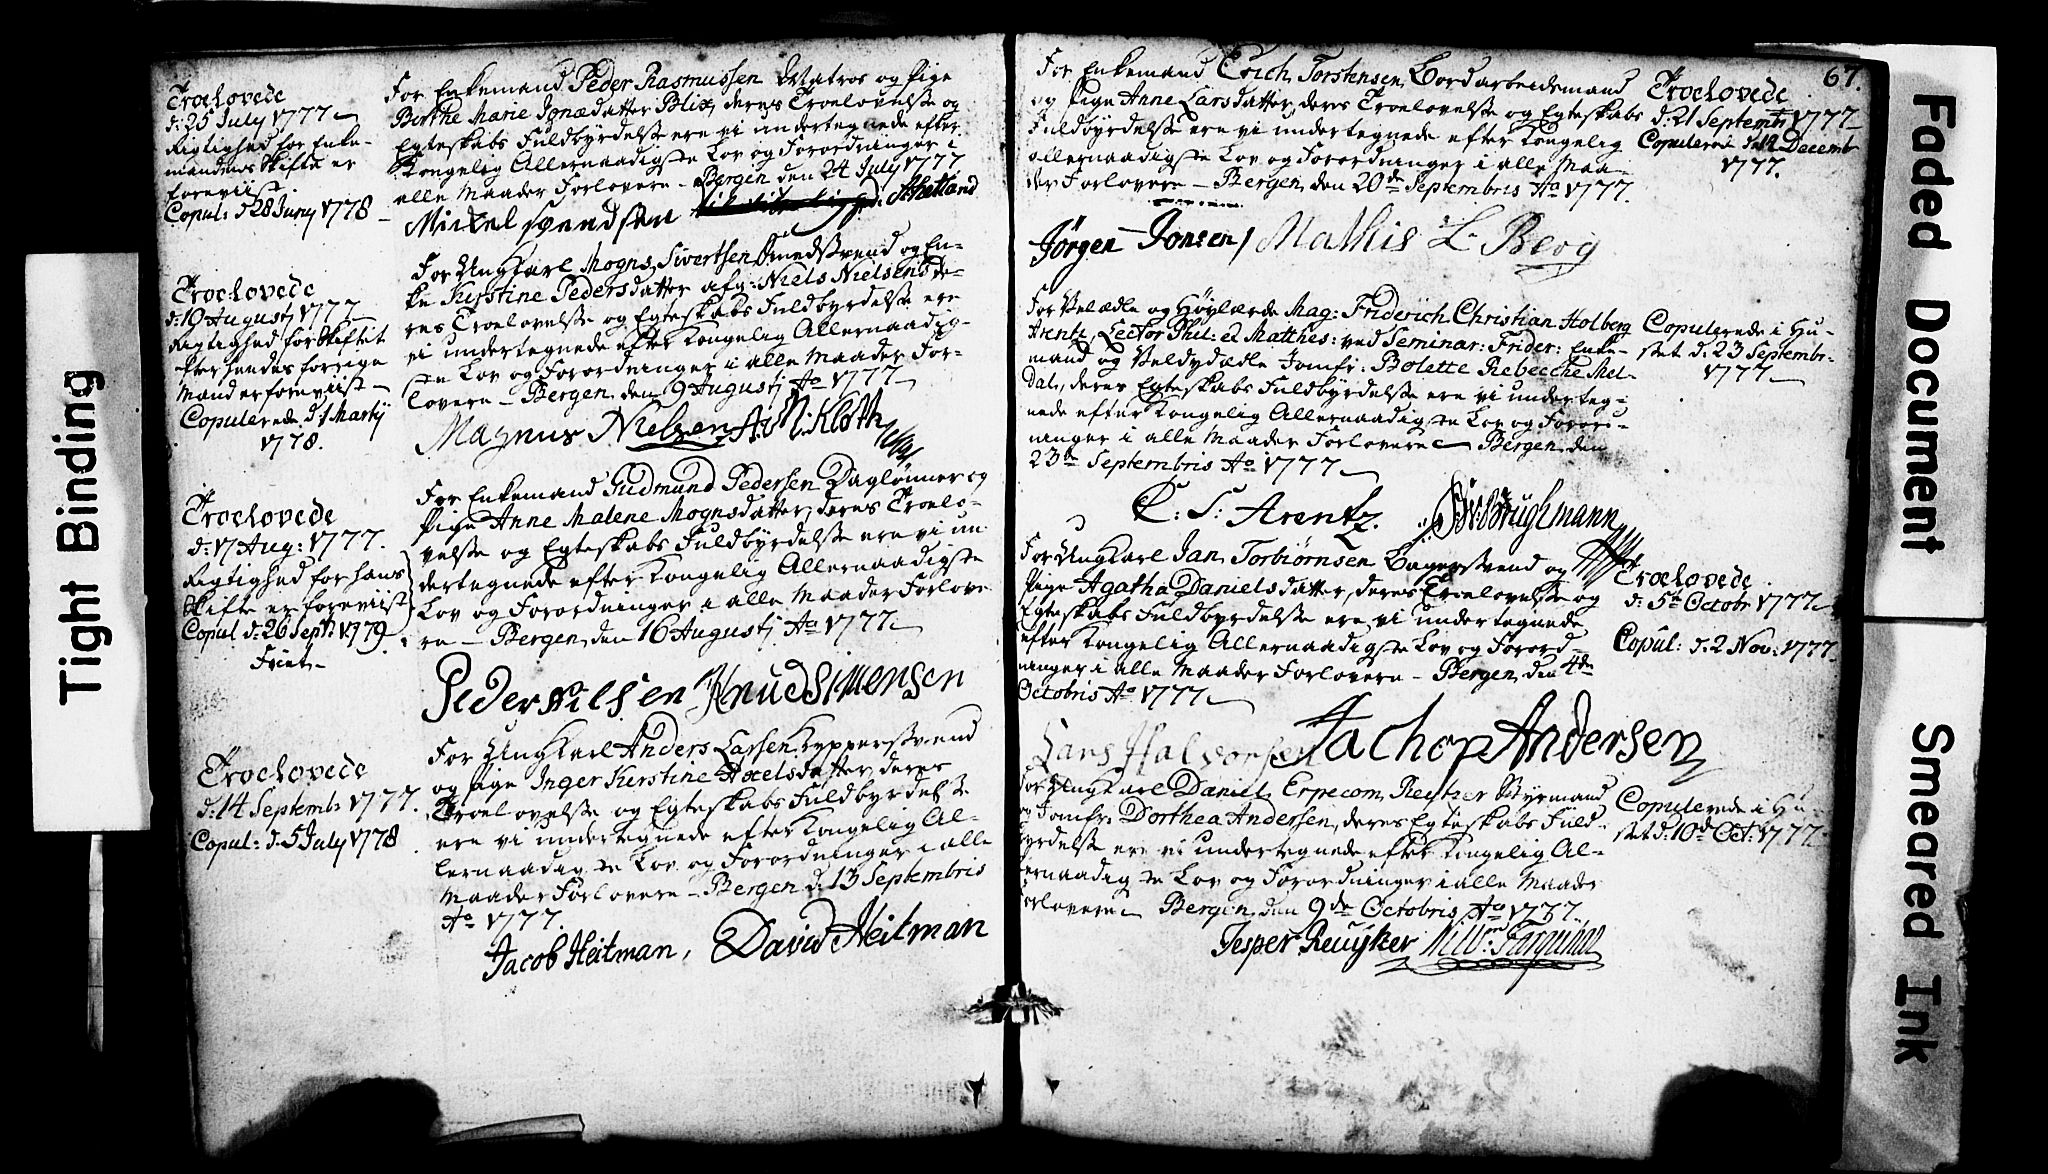 Troelovede
d: 25 July 1777
Rigtighed for Enke-
mandens Skifte er
foreviist
Copul: d 28 Juny 1778
For Enkemand Peder Rasmussen Matros og Pige
Berthe Marie Jonædatter Blix, deres Troelovelse og
Egteskabs Fuldbyrdelse ere vi undertegnede efter
Kongelig Allernaadigste Lov og Forordninger i
alle Maader Forlovere – Bergen den 24 July 1777
Mickel svendsen
Troelovede
d: 10 Augustj 1777
Rigtighed for Skiftet
efter hendes forrige
Mand er foreviist –
Copulerede d: 1 Martij
1778.
For Ungkarl Mogns Sivertsen Smedsvend og En-
ke Kirstine Pedersdatter afg: Niels Nielsens de-
res Troelovelse og Egteskabs Fuldbyrdelse ere
vi undertegnede efter Kongelig Allernaadig-
ste Lov og Forordninger i alle Maader For-
lovere – Bergen den 9 Augustj Ao 1777
Magnus Nielsen
Troelovede
d: 17 Aug: 1777.
Rigtighed for hans
Skifte er foreviist
Copul d: 26 Sept: 1779
For Enkemand Gudmund Pedersen Daglønner og
Pige Anne Malene Mognsdatter, deres Troelo-
velse og Egteskabs Fuldbyrdelse ere vi un-
dertegnede efter Kongelig Allernaadigste
Lov og Forordninger i alle Maader Forlove
re – Bergen den 16 Augustj Ao 1777
Peder Nilsen Knud Simensen
Troelovede
d: 14 Septembr 1777.
Copul: d. 5 July 1778
For Ungkarl Anders Larsen Kyppersvend
og Pige Inger Kirstine Axelsdatter, deres
Troelovelse og Egteskabs Fuldbyrdelse
ere vi undertegnede efter Kongelig Al-
lernaadigste Lov og Forordninger i alle
Maader Forlovere – Bergen d: 13 Septembris
Ao 1777.
Jacob Heitman, David Heitman
67.
For Enkemand Erich Torstensen Bordarbeidsmand
og Pige Anne Larsdatter, deres Troelovelse og Egteskabs
Fuldbyrdelse ere vi undertegnede efter Kongelig
allernaadigste Lov og Forordninger i alle Maa-
der Forlovere – Bergen den 20de Septembris Ao 1777.
Troelovede
d: 21 Septembr 1777
Copulerede d: 12 Decembr
1777.
Jørgen Jonsen / Mathis L. Berg
For Velædle og Høylærde Mag: Friderich Christian Holberg
Arentz, Lector Phil: et Mathes: ved Seminar: Frider: Enke-
mand og Veldydædle Jomfr: Bolette Rebecche Mel-
dal, deres Egteskabs Fuldbyrdelse ere vi underteg-
nede efter Kongelig Allernaadigste Lov og Forord-
ninger i alle Maader Forlovere – Bergen den
23de Septembris Ao 1777
Copulerede i Hu-
set d. 23 Septembr.
1777
C: S: Arentz.
For Ungkarl Jan Torbiørnsen Bagersvend og
Pige Agatha Danielsdatter, deres Troelovelse og
Egteskabs Fuldbyrdelse ere vi undertegnede
efter Kongelig Allernaadigste Lov og Forord-
ninger i alle Maader Forlovere – Bergen den 4de
Octobris Ao 1777
Troelovede
d: 5te Octobr 1777
Copul: d. 2 Nov: 1777.
Lars Halvorsen Jachop Andersen
For Ungkarl Daniel Erpecom Reutzer Styrmand
og Jomfr: Dorthea Andersen, deres Egteskabs Fuld-
byrdelse ere vi undertegnede efter Kongelig Al-
lernaadigste Lov og Forordninger i alle Maader
Forlovere – Bergen den 9de Octobris Ao 1777.
Copulerede i Hu-
set d. 10de Oct: 1777.
Jesper Reuyker
Tight Binding
Faded Document
Smeared Ink